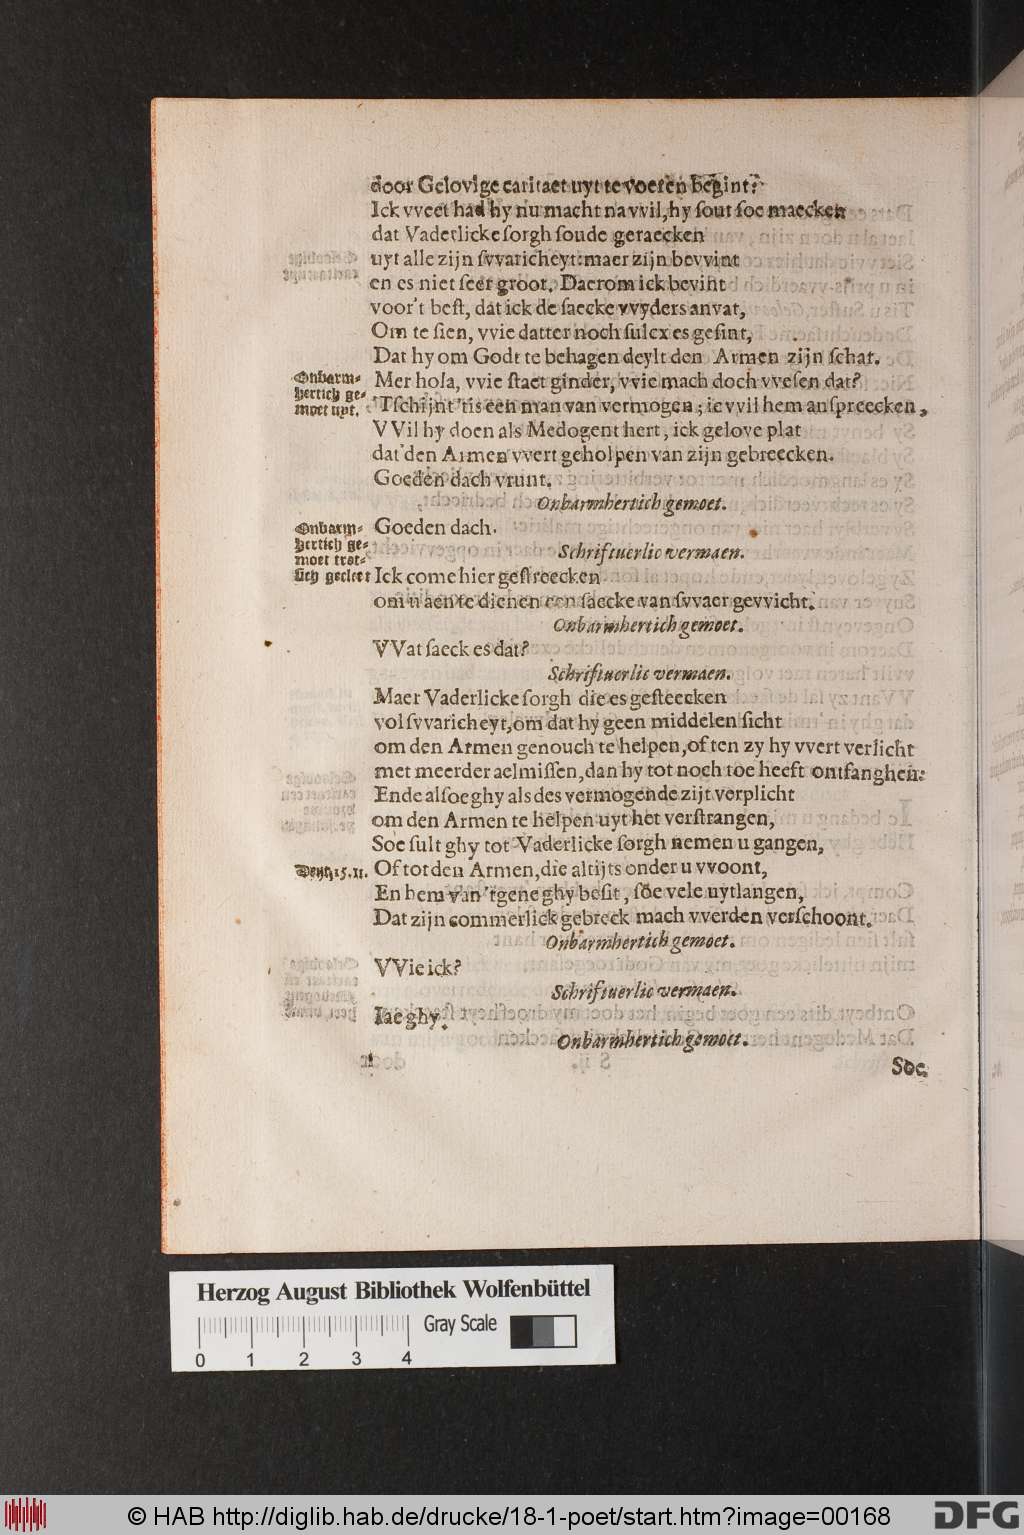 door Gelovige caritaet uyt te voeren begint?
Ick vveet had hy nu macht na vvil, hy sout soe maecken
dat Vaderlicke sorgh soude geraecken
uyt alle zijn svvaricheyt: maer zijn bevvint
en es niet seer groot. Daerom ick bevint
voor't best, dat ick de saecke vvyders anvat,
Om te sien, vvie datter noch sulcx es gesint,
Dat hy om Godt te behagen deylt den Armen zijn schat.
Onbarm-
hertich ge-
moet uyt.
Mer hola, vvie staet ginder, vvie mach doch vvesen dat?
'Tschijnt 'tis een man van vermogen; ic vvil hem anspreecken,
VVil hy doen als Medogent hert, ick gelove plat
dat den Armen vvert geholpen van zijn gebreecken.
Goeden dach vrunt.
Onbarmhertich gemoet.
Onbarm-
hertich ge-
moet trot-
sich gecleet
Goeden dach.
Schriftuerlic vermaen.
Ick come hier gestreecken
om u aen te dienen een saecke van svvaer gevvicht.
Onbarmhertich gemoet.
VVat saeck es dat?
Schriftuerlic vermaen.
Maer Vaderlicke sorgh die es gesteecken
vol svvaricheyt, om dat hy geen middelen sicht
om den Armen genouch te helpen, of ten zy hy vvert verlicht
met meerder aelmissen, dan hy tot noch toe heeft ontfanghen:
Ende alsoe ghy als des vermogende zijt verplicht
om den Armen te helpen uyt het verstrangen,
Soe sult ghy tot Vaderlicke sorgh nemen u gangen,
Deut. 15. 11.
Of tot den Armen, die altijts onder u vvoont,
En hem van 'tgene ghy besit, soe vele uytlangen,
Dat zijn commerlick gebreck mach vverden verschoont.
Onbarmhertich gemoet.
VVie ick?
Schriftuerlic vermaen.
Iae ghy.
Onbarmhertich gemoet.
Soe
Herzog August Bibliothek Wolfenbüttel
Gray Scale
0 1 2 3 4
© HAB http://diglib.hab.de/drucke/18-1-poet/start.htm?image=00168
DFG